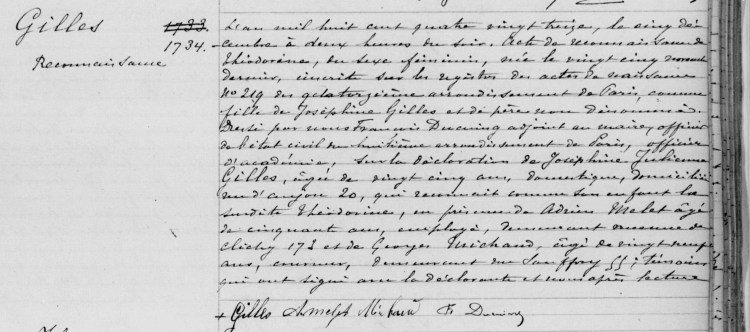 Gilles
1733.
1734.
Reconnaissance
L'an mil huit cent quatre vingt treize, le cinq dé
cembre à deux heures du soir. Acte de reconnaissance de
Théodorine, du sexe féminin, née le vingt cinq novembre
dernier, inscrite sur les registres des actes de naissance
No 219 du quatorzième arrondissement de Paris, comme
fille de Joséphine Gilles et de père non dénommé.
Dressé par nous François Ducuing adjoint au maire, officier
de l'état civil du huitième arrondissement de Paris, officier
d'académie, sur la déclaration de Joséphine Julienne
Gilles, âgée de vingt cinq ans, domestique, domiciliée
rue d'anjou 20, qui reconnait comme son enfant la
susdite Théodorine, en présence de Adrien Melet âgé
de cinquante ans, employé, demeurant avenue de
Clichy 173 et de Georges Michaud, âgé de vingt neuf
ans, demeurant rue Jouffroy 55; témoins
qui ont signé avec la déclarante et nous après lecture
+ Gilles AMelet Michaud F. Ducuing